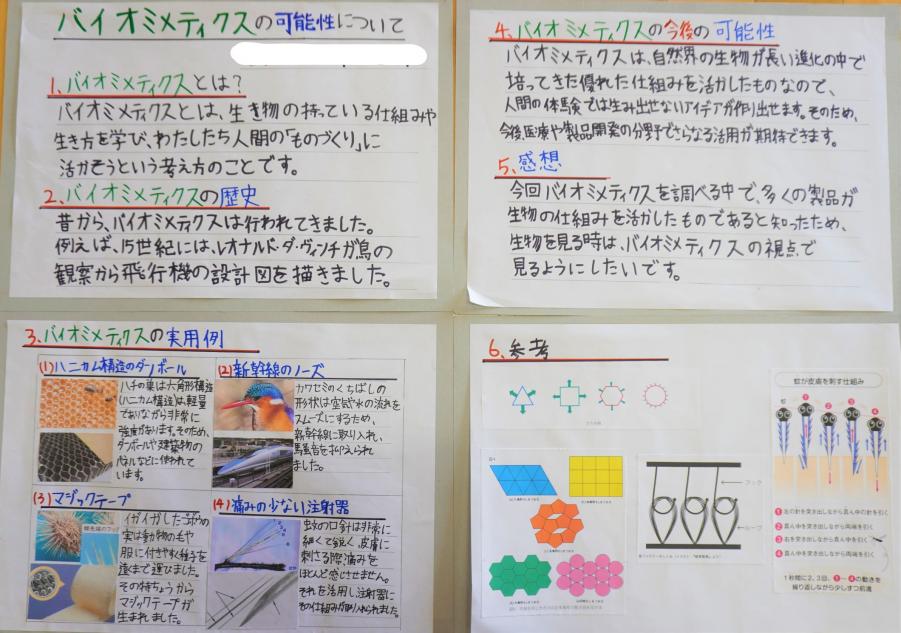 バイオミメティクスの可能性について
1.バイオミメティクスとは?
バイオミメティクスとは、生き物の持っている仕組みや
生き方を学び、わたしたち人間の「ものづくり」に
活かそうという考え方のことです。
2.バイオミメティクスの歴史
昔から、バイオミメティクスは行われてきました。
例えば、15世紀には、レオナルド・ダ・ヴィンチが鳥の
観察から飛行機の設計図を描きました。
3.バイオミメティクスの実用例
(1)ハニカム構造のダンボール
ハチの巣は六角形構造
(ハニカム構造)は、軽量
でありながら非常に
強度があります。そのため、
ダンボールや建築物の
パネルなどに使われて
います。
(2)新幹線のノーズ
カワセミのくちばしの
形状は空気や水の流れを
スムーズにするため、
新幹線に取り入れ、
騒音を抑えられ
ました。
(3)マジックテープ
イガイガしたゴボウの
実は動物の毛や
服に付き
遠まで運びました。
その特ちょうから
マジックテープが
生まれました。
(4)痛みの少ない注射器
蚊の口針は非常に
細くて鋭く、皮膚に
刺さる際痛みを
ほとんど感じさせません。
それを活用し注射器に
その仕組みが取り入れられました。
4.バイオミメティクスの今後の可能性
バイオミメティクスは、自然界の生物が長い進化の中で
培ってきた優れた仕組みを活かしたものなので、
人間の体験では生み出せないアイデアが作り出せます。そのため、
今後、医療や製品開発の分野でさらなる活用が期待できます。
5.感想
今回バイオミメティクスを調べる中で、多くの製品が
生物の仕組みを活かしたものであると知ったため、
生物を見る時は、バイオミメティクスの視点で
見るようにしたいです。
6.参考
フック
ループ
蚊が皮膚を刺す仕組み
蚊
1 2 3 4
1 左の針を突き出しながら真ん中の針を引く
2 真ん中を突き出しながら両端を引く
3 右を突き出しながら真ん中を引く
4 真ん中を突き出しながら両端を引く
1秒間に2、3回、1〜4の動きを
繰り返しながら少しずつ前進